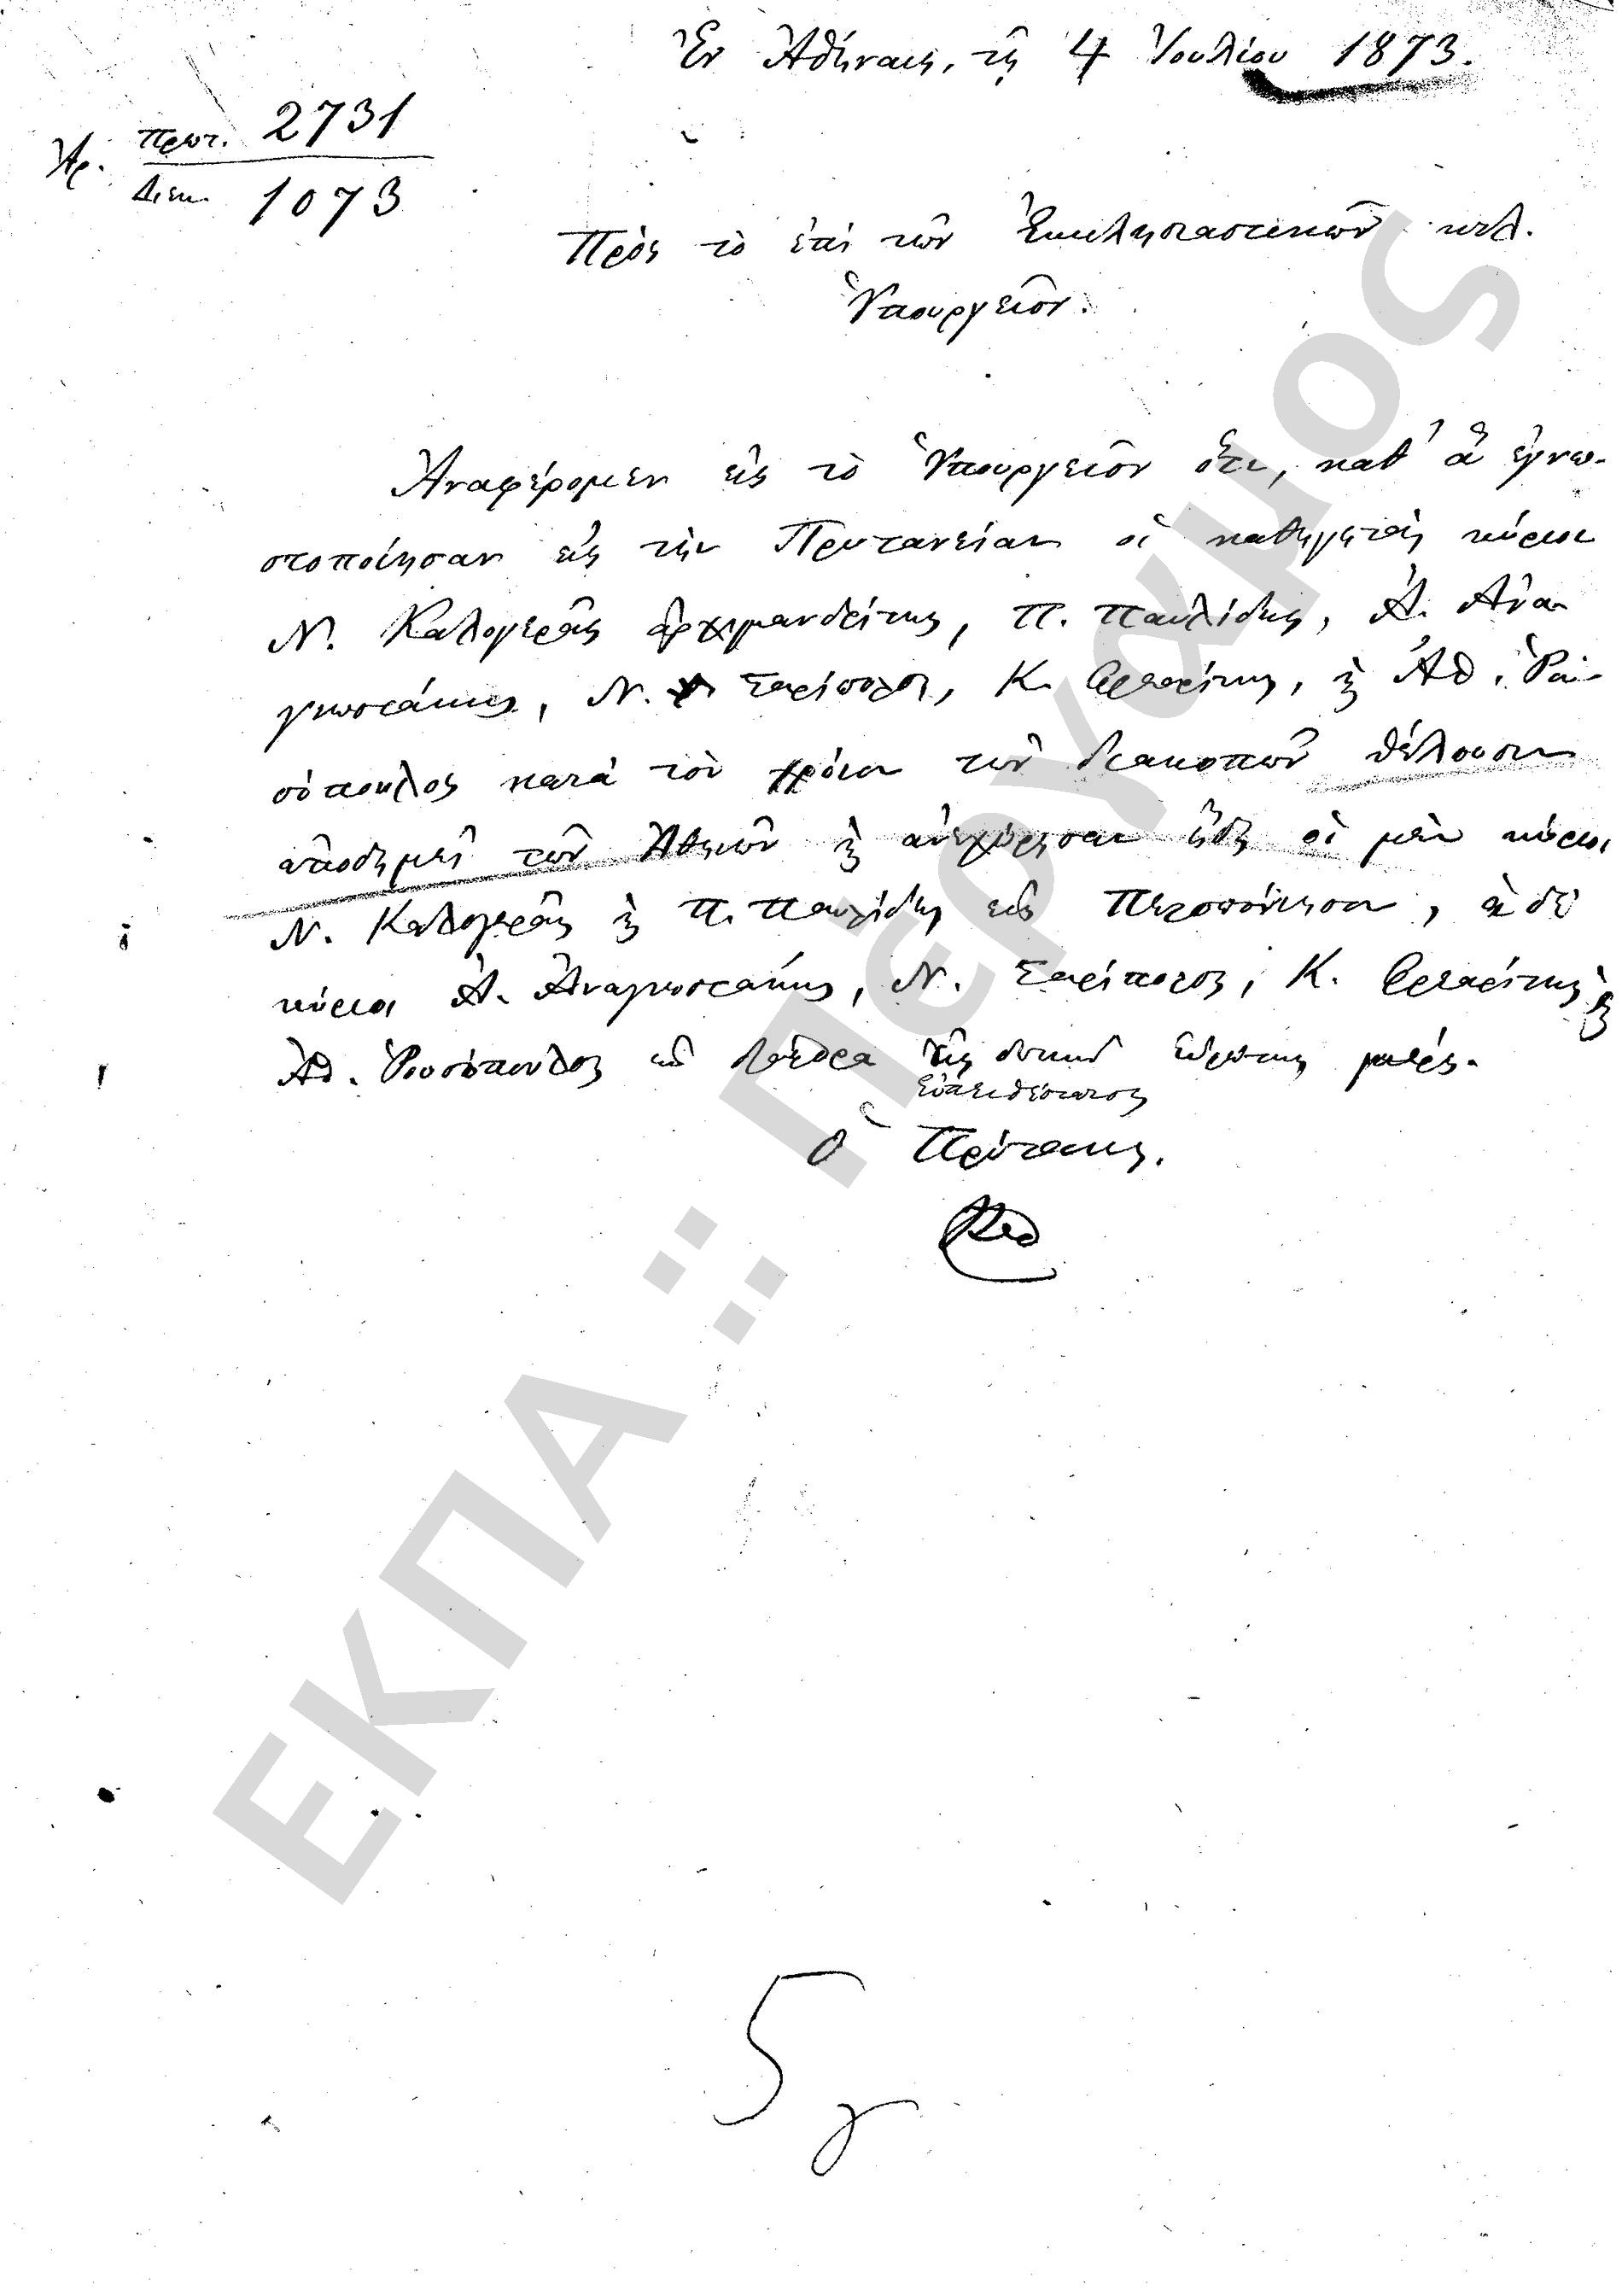 Ἐν Ἀθήναις, τῇ 4 Ἰουλίου 1873.
Ἀρ. Πρωτ. 2731
Διεκ. 1073
Πρὸς τὸ ἐπὶ τῶν Ἐκκλησιαστικῶν κτλ.
Ὑπουργεῖον.
Ἀναφέρομεν εἰς τὸ Ὑπουργεῖον ὅτι, καθ' ἃ ἐγνω-
στοποίησαν εἰς τὴν Πρυτανείαν οἱ καθηγηταὶ κύριοι
Ν. Καλογερᾶς ἀρχιμανδρίτης, Π. Παυλίδης, Ἀ. Ἀνα-
γνωστάκης, Ν. Σαρίπολος, Κ. Φρεαρίτης, καὶ Ἀθ. Ῥου-
σόπουλος κατὰ τὸν χρόνον τῶν διακοπῶν θέλουσιν
ἀποδημεῖ τῶν Ἀθηνῶν καὶ ἀνεχώρησαν ἤδη οἱ μὲν κύριοι
Ν. Καλογερᾶς καὶ Π. Παυλίδης εἰς Πελοπόννησον, οἱ δὲ
κύριοι Ἀ. Ἀναγνωστάκης, Ν. Σαρίπολος, Κ. Φρεαρίτης καὶ
Ἀθ. Ῥουσόπουλος εἰς διάφορα τῆς Εὐρώπης μέρη.
Εὐπειθέστατος
Ὁ Πρύτανις.
5
γ
ΕΚΠΑ :: Πέργαμος